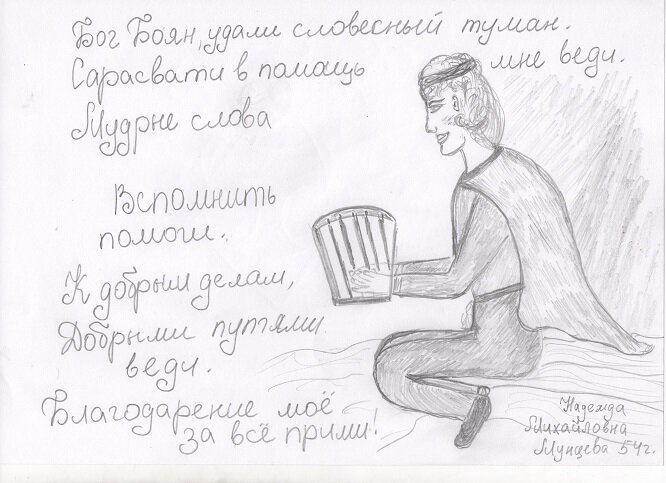 Бог Боян, удали словесный туман.
Сарасвати в помощь мне веди.
Мудрые слова
Вспомнить
помоги.
К добрым делам,
Добрыми путями
веди.
Благодарение моё
за всё прими!
Надежда
Михайловна
Мунцева 54г.